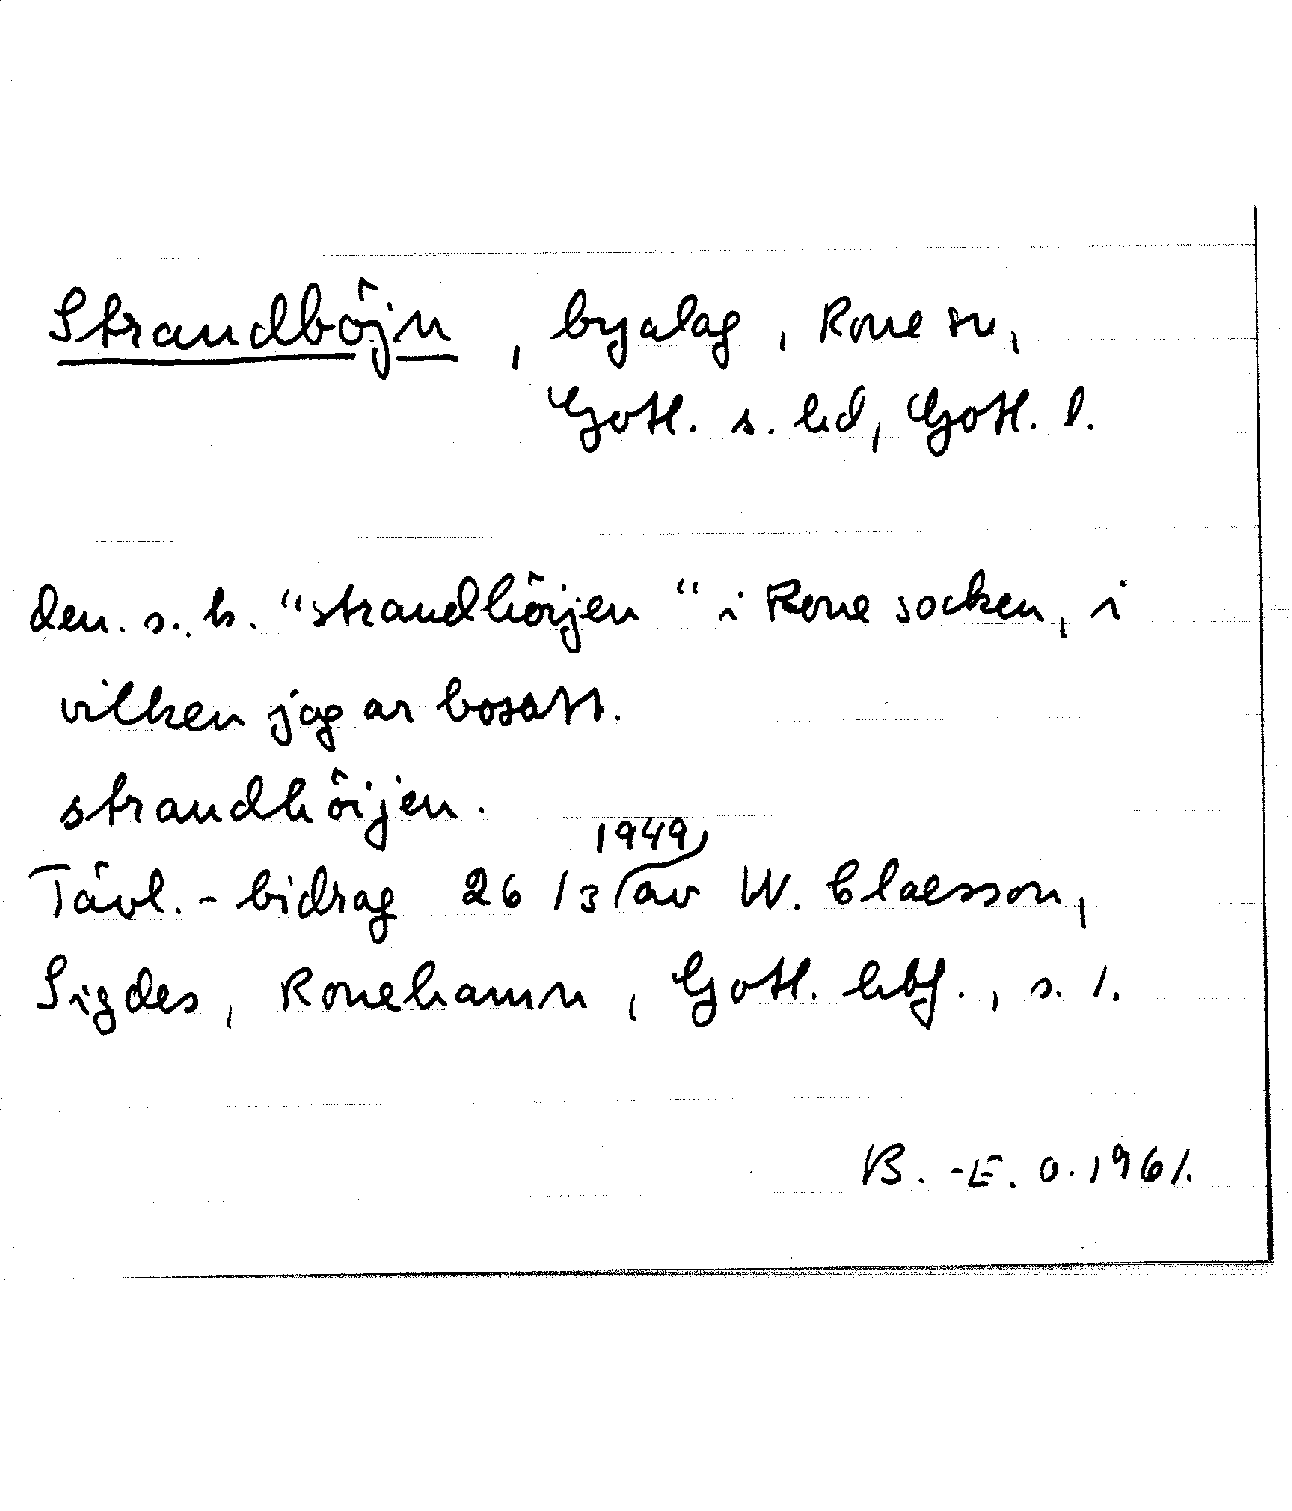 Strandböjn, byalag, Rone sn,
Gotl. s. hd, Gotl. l.
den. s. k. "strandhöijen" i Rone socken, i
vilken jag är bosatt.
strandhöijen.
1949
Tävl.-bidrag 26/3 av W. Claesson,
Sigdes, Ronehamn, Gotl. hbf., s. 1.
B.-E. O. 1961.